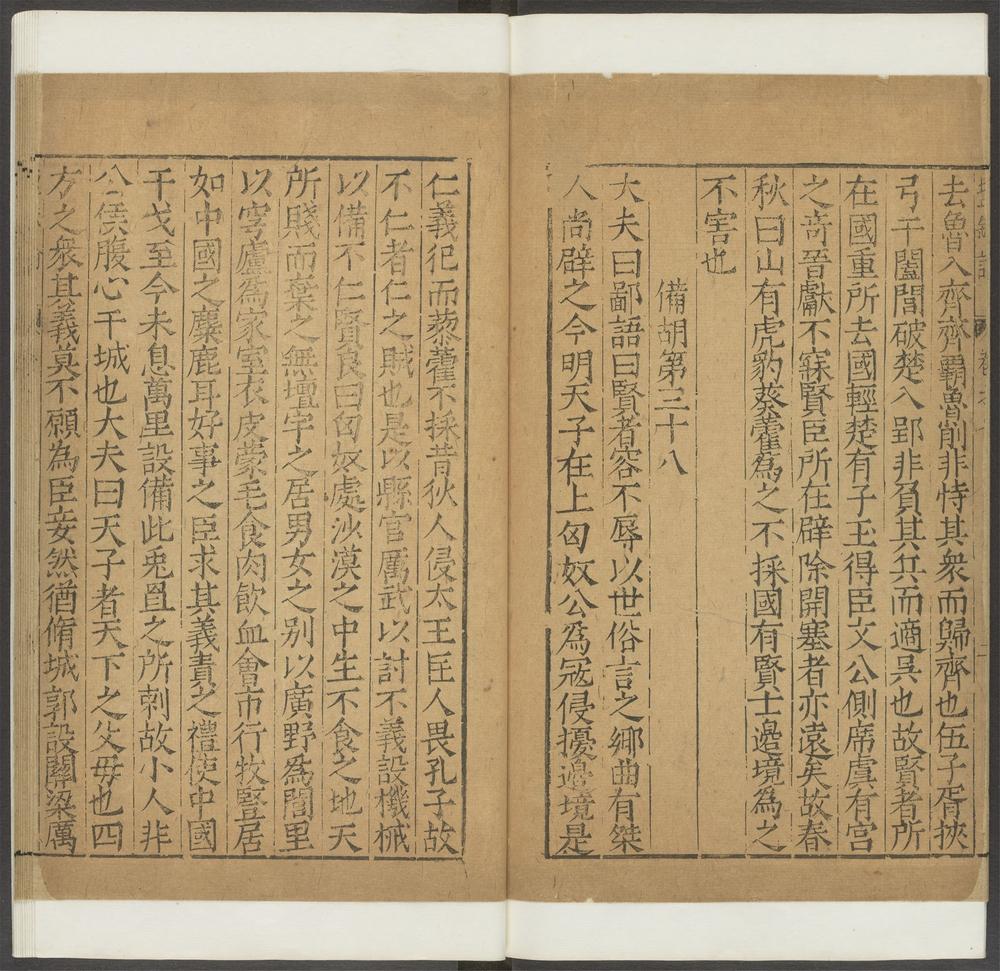 去魯入齊齊霸魯削非恃其衆而歸齊也伍子胥挾
弓干闔閭破楚入郢非負其兵而適吳也故賢者所
在國重所去國輕楚有子玉得臣文公側席虞有宮
之奇晉獻不寐賢臣所在辟除開塞者亦遠矣故春
秋曰山有虎豹葵藿爲之不採國有賢士邉境為之
不害也
備胡第三十八
大夫曰鄙語曰賢者容不辱以世俗言之鄉曲有桀
人尚辟之今明天子在上匈奴公爲寇侵擾邉境是
仁義犯而藜藿不採昔狄人侵太王匡人畏孔子故
不仁者仁之賊也是以縣官厲武以討不義設機械
以備不仁賢良曰匈奴處沙漠之中生不食之地天
所賤而棄之無壇宇之居男女之别以廣野爲閭里
以穹廬爲家室衣皮蒙毛食肉飲血會市行牧豎居
如中國之麋鹿耳好事之臣求其義責之禮使中國
干戈至今未息萬里設備此兎罝之所刺故小人非
公侯腹心干城也大夫曰天子者天下之父母也四
方之衆其義莫不願為臣妾然猶脩城郭設關梁厲